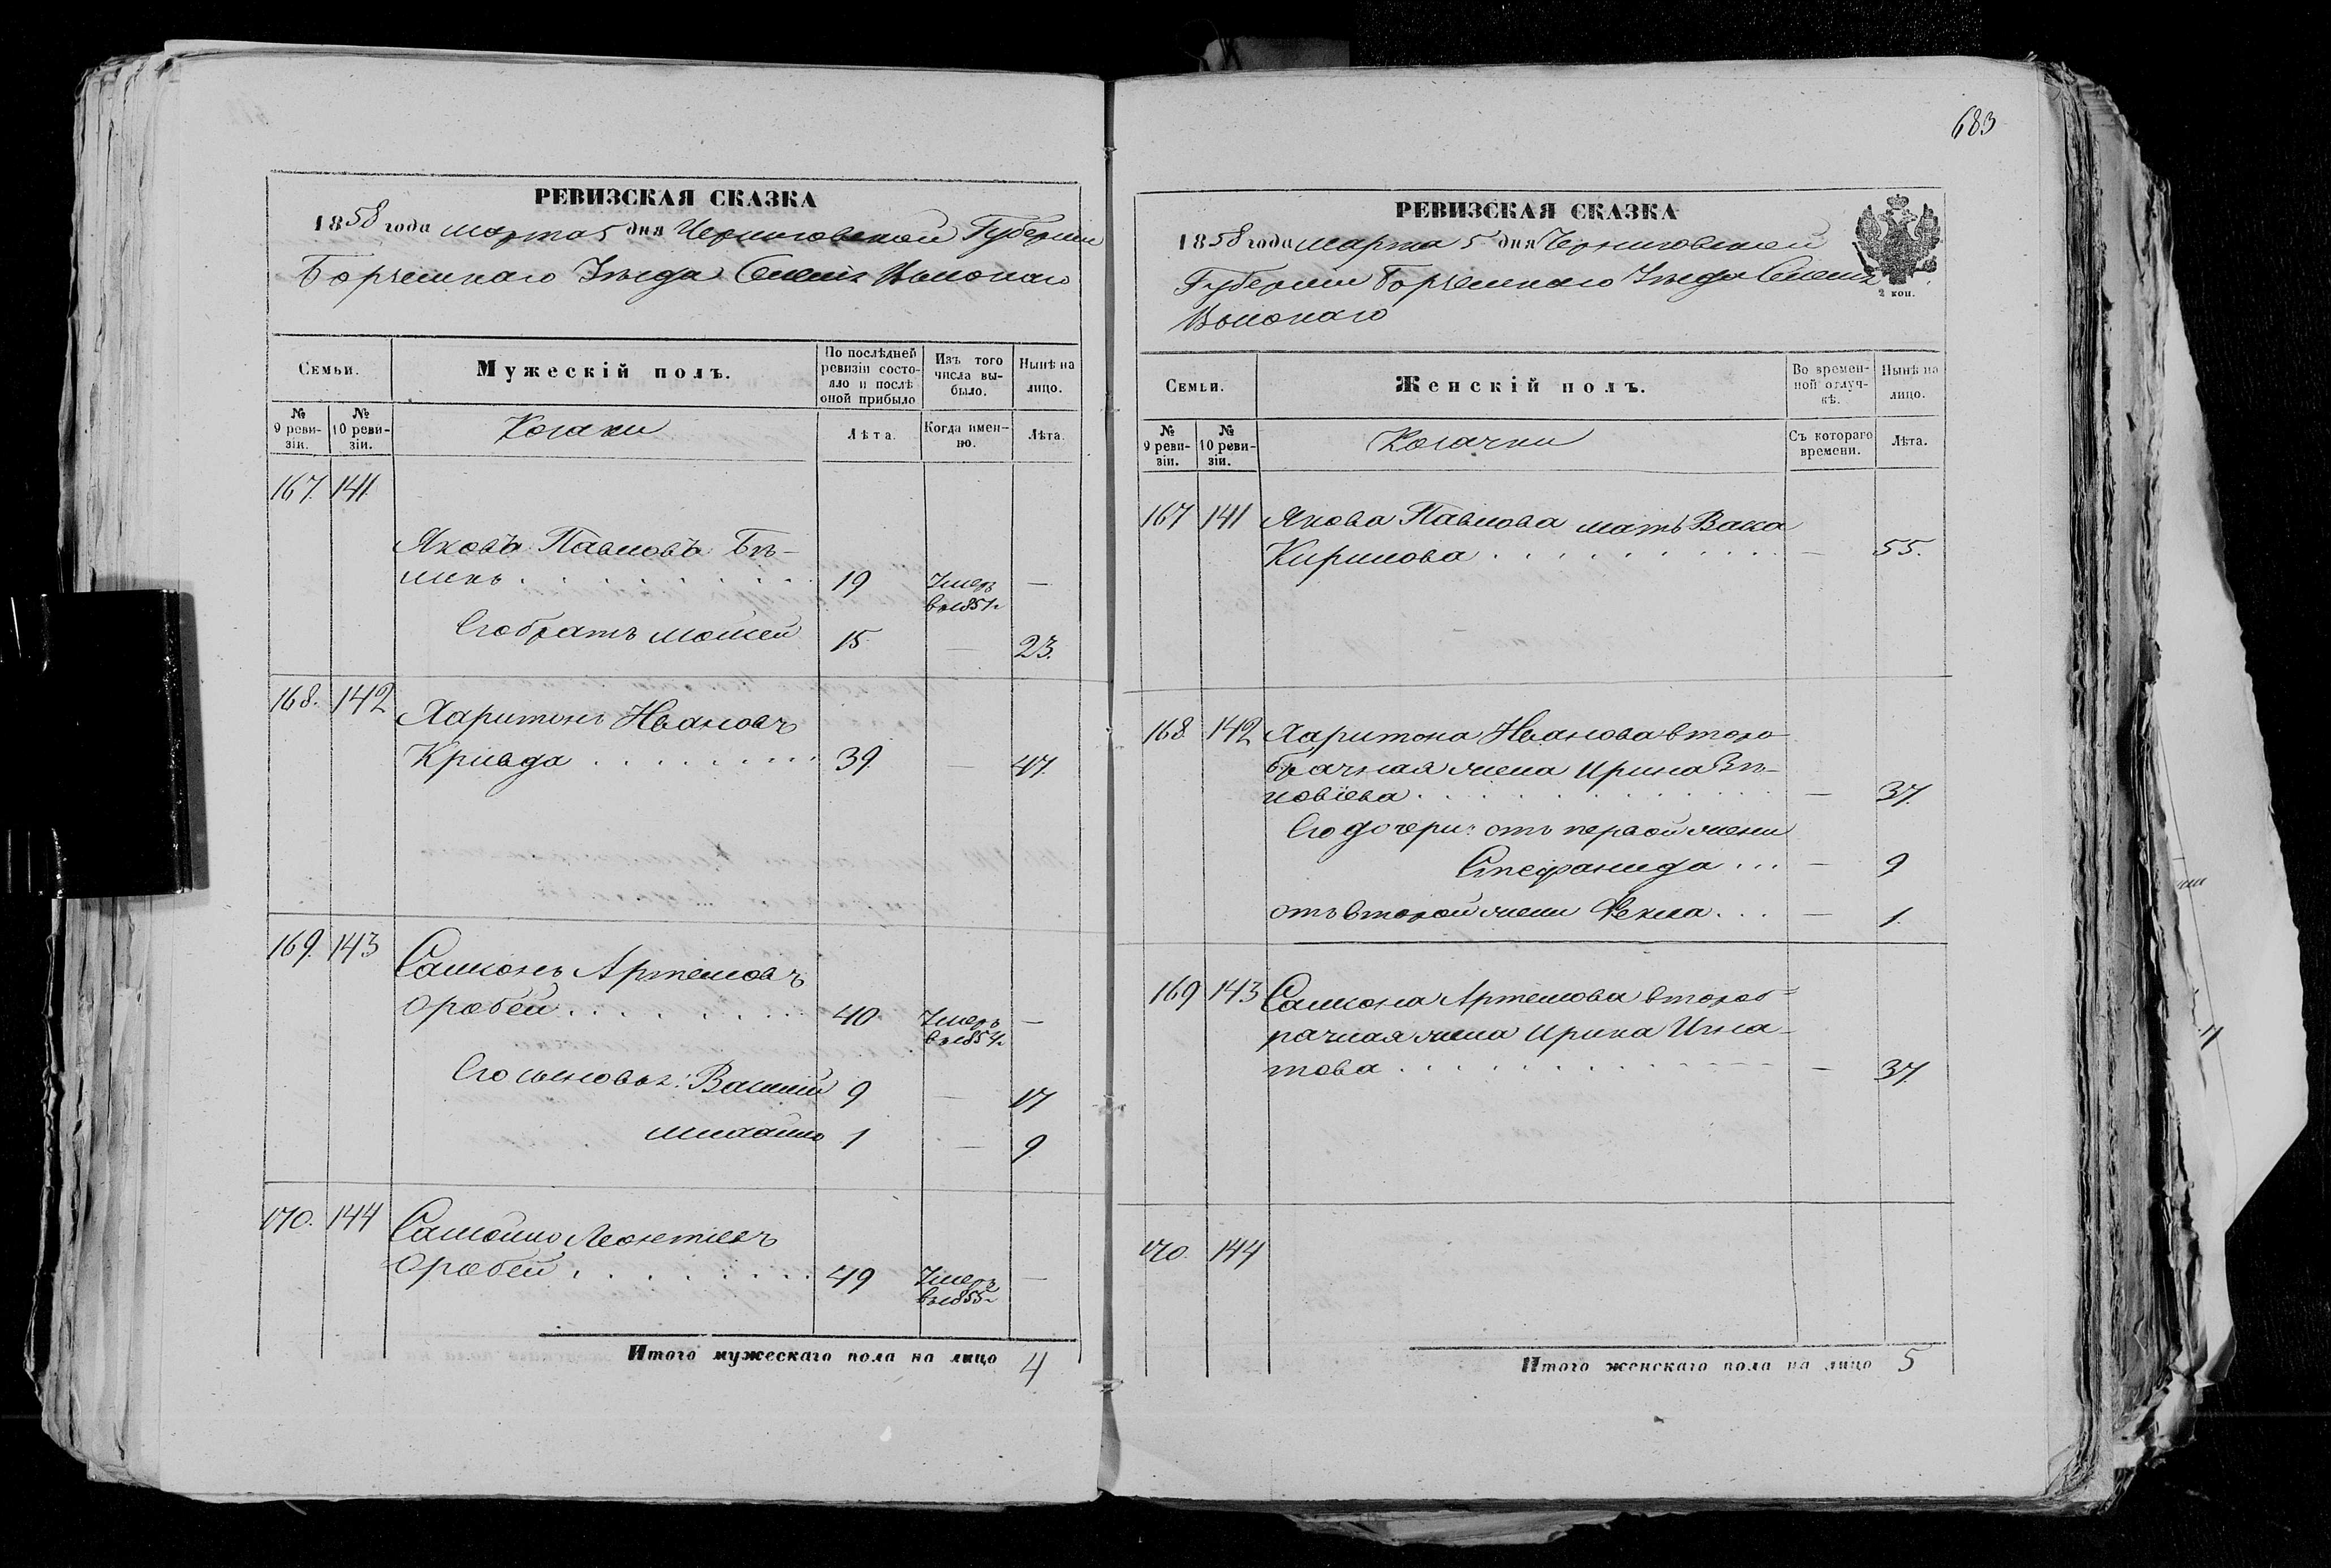 683
РЕВИЗСКАЯ СКАЗКА
1858 года марта 5 дня Черниговской Губерніи
Борзенскаго Уѣзда Селенія Высокаго
Семьи.
Мужескій полъ.
По послѣдней ревизіи состояло и послѣ оной прибыло
Изъ того числа выбыло.
Ныне на лицо.
№ 9 ревизіи.
№ 10 ревизіи.
Козаки
Лѣта.
Когда именно.
Лѣта.
167. 141.
Яковъ Павловъ Бѣ-
19 Умеръ в 1851 г —
Его братъ Мойсей 15 — 23.
168. 142 Харитонъ Ивановъ
Кривда 39. — 47.
169. 143 Самсонъ Артемовъ
Оробей 40 Умеръ в 1854 г —
Его сыновья: Василій 9 — 17
Михайло 1 — 9
170. 144 Самойло Леонтіевъ
Оробей 49 Умеръ в 1855 г —
Итого мужескаго пола на лицо 4
РЕВИЗСКАЯ СКАЗКА
1858 года марта 5 дня Черниговской
Губерніи Борзенскаго Уѣзда Селенія
Высокаго
2 коп.
Семьи.
Женскій полъ.
Во временной отлучкѣ.
Нынѣ на лицо.
№ 9 ревизіи.
№ 10 ревизіи.
Козачки
Съ котораго времени.
Лѣта.
167 141 Якова Павлова мать Васса
Кирилова — 55.
168 142 Харитона Иванова второ-
брачная жена Ирина Зѣ-
новіева — 37.
Его дочери: отъ первой жени
Стефанида — 9
отъ второй жени Фекла — 1.
169 143 Самсона Артемова второб-
рачная жена Ирина Игна-
това — 37.
170. 144
Итого женскаго пола на лицо 5